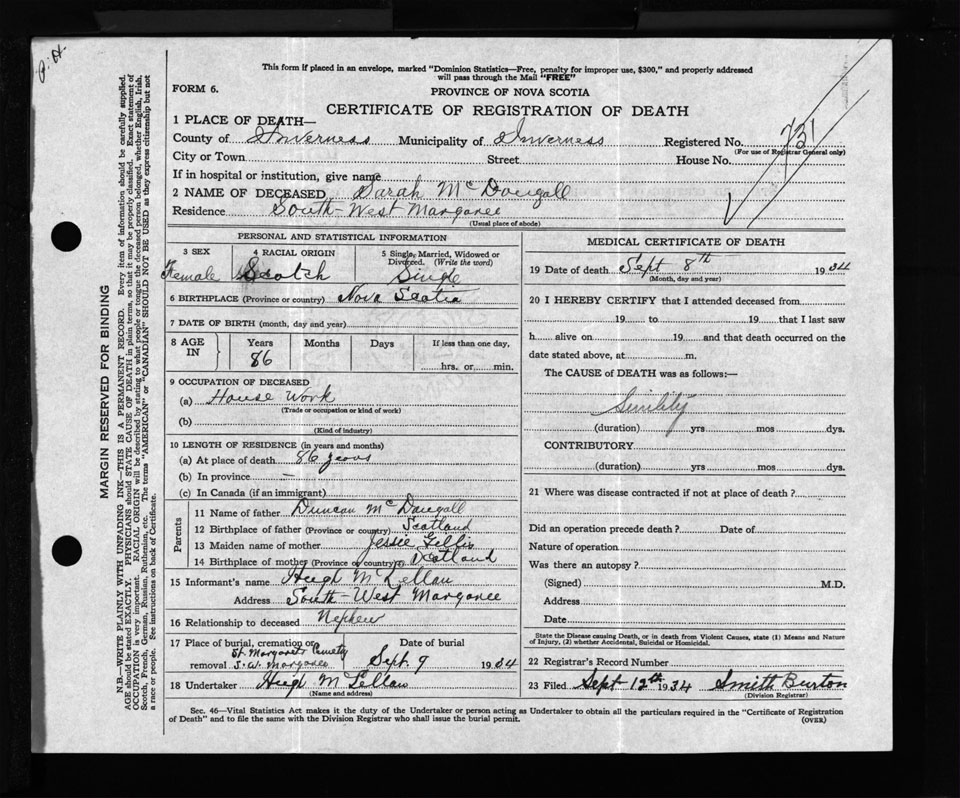 P.A.
This form if placed in an envelope, marked "Dominion Statistics—Free, penalty for improper use, $300," and properly addressed
will pass through the Mail "FREE"
FORM 6.
PROVINCE OF NOVA SCOTIA
CERTIFICATE OF REGISTRATION OF DEATH
1 PLACE OF DEATH—
County of Inverness Municipality of Inverness Registered No. 731
(For use of Registrar General only)
City or Town Street House No.
If in hospital or institution, give name
2 NAME OF DECEASED Sarah McDougall
Residence South-West Margaree
(Usual place of abode)
MARGIN RESERVED FOR BINDING
N.B.—WRITE PLAINLY WITH UNFADING INK—THIS IS A PERMANENT RECORD. Every item of information should be carefully supplied.
AGE should be stated EXACTLY. PHYSICIANS should STATE CAUSE OF DEATH in plain terms, so that it may be properly classified. Exact statement of
OCCUPATION is very important. RACIAL ORIGIN will be described by stating to what people or tongue the deceased person belonged, whether English, Irish,
Scotch, French, German, Russian, Ruthenian, etc. The terms "AMERICAN" or "CANADIAN" SHOULD NOT BE USED as they express citizenship but not
a race or people. See instructions on back of Certificate.
PERSONAL AND STATISTICAL INFORMATION
3 SEX 4 RACIAL ORIGIN 5 Single, Married, Widowed or
Divorced. (Write the word)
Female Scotch Single
6 BIRTHPLACE (Province or country) Nova Scotia
7 DATE OF BIRTH (month, day and year)
8 AGE IN Years Months Days If less than one day,
86 hrs. or min.
9 OCCUPATION OF DECEASED
(a) House Work
(Trade or occupation or kind of work)
(b)
(Kind of industry)
10 LENGTH OF RESIDENCE (in years and months)
(a) At place of death 86 years
(b) In province —
(c) In Canada (if an immigrant)
Parents
11 Name of father Duncan McDougall
12 Birthplace of father (Province or country) Scotland
13 Maiden name of mother Jessie Gillis
14 Birthplace of mother (Province or country) Scotland
15 Informant's name Hugh McLellan
Address South-West Margaree
16 Relationship to deceased Nephew
17 Place of burial, cremation or removal St. Margarets Cemetry S.W. Margaree
Date of burial Sept. 9 1934
18 Undertaker Hugh McLellan
(Name and address)
MEDICAL CERTIFICATE OF DEATH
19 Date of death Sept 8th 1934
(Month, day and year)
20 I HEREBY CERTIFY that I attended deceased from
19 to 19 that I last saw
h alive on 19 and that death occurred on the
date stated above, at m.
The CAUSE of DEATH was as follows:—
Senility
(duration) yrs mos dys.
CONTRIBUTORY
(duration) yrs mos dys.
21 Where was disease contracted if not at place of death?
Did an operation precede death? Date of
Nature of operation
Was there an autopsy?
(Signed) M.D.
Address
Date
State the Disease causing Death, or in death from Violent Causes, state (1) Means and Nature
of Injury, (2) whether Accidental, Suicidal or Homicidal.
22 Registrar's Record Number
23 Filed Sept 12th 1934 Smith Burton
(Division Registrar)
Sec. 46—Vital Statistics Act makes it the duty of the Undertaker or person acting as Undertaker to obtain all the particulars required in the "Certificate of Registration
of Death" and to file the same with the Division Registrar who shall issue the burial permit.
(OVER)